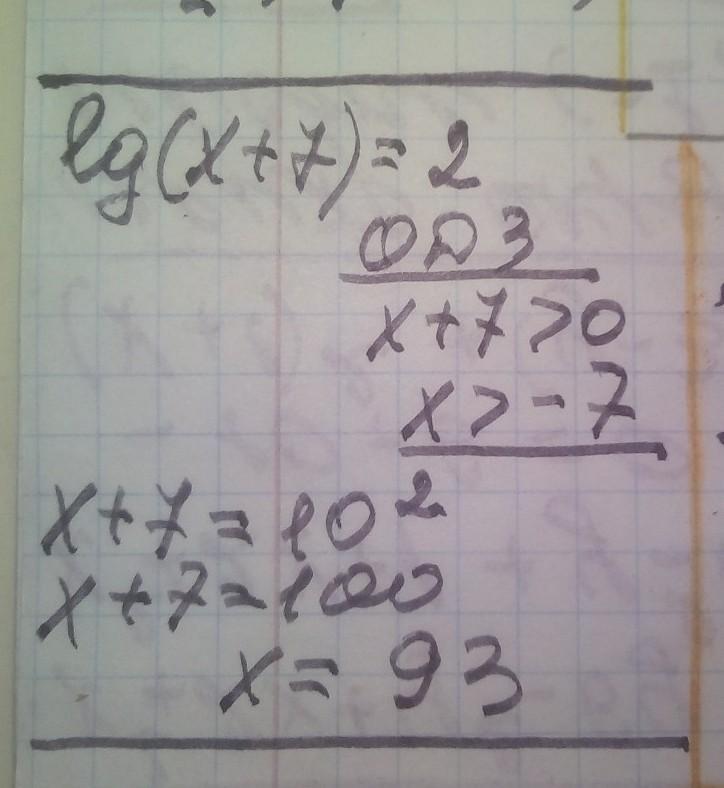 lg(x+7)=2
ОДЗ
x+7>0
x>-7
x+7=10²
x+7=100
x=93